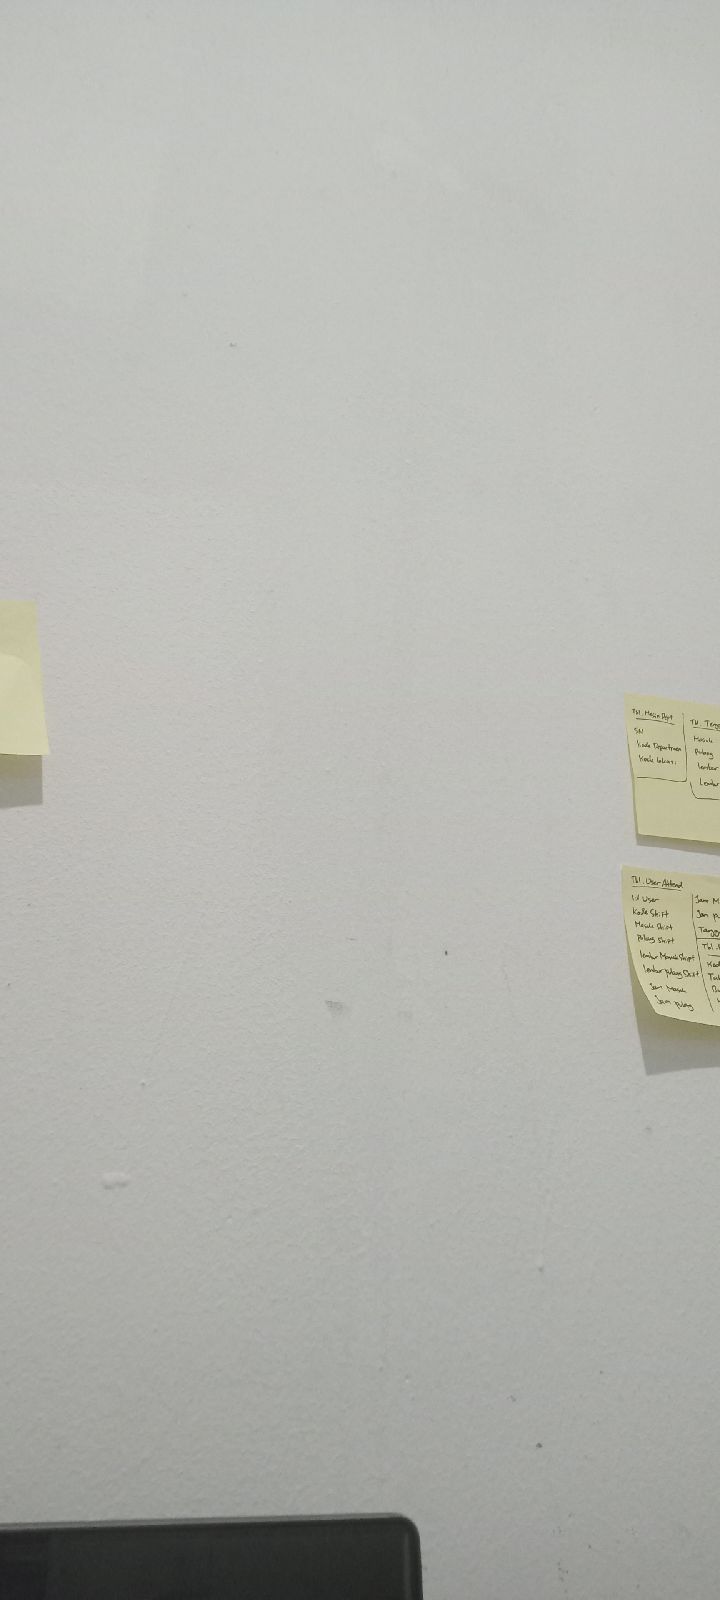 Tbl. Mesin Dept
SN
Kode Departmen
Kode lokasi
Tbl. Tangg
Masuk
Pulang
lembur
Lembur
Tbl. User Attend
Id User
Kode Shift
Masuk Shift
Pulang Shift
lembur Masuk Shift
lembur pulang Shift
Jam Masuk
Jam pulang
Jam M
Jam p
Tangg
Tbl.
Kod